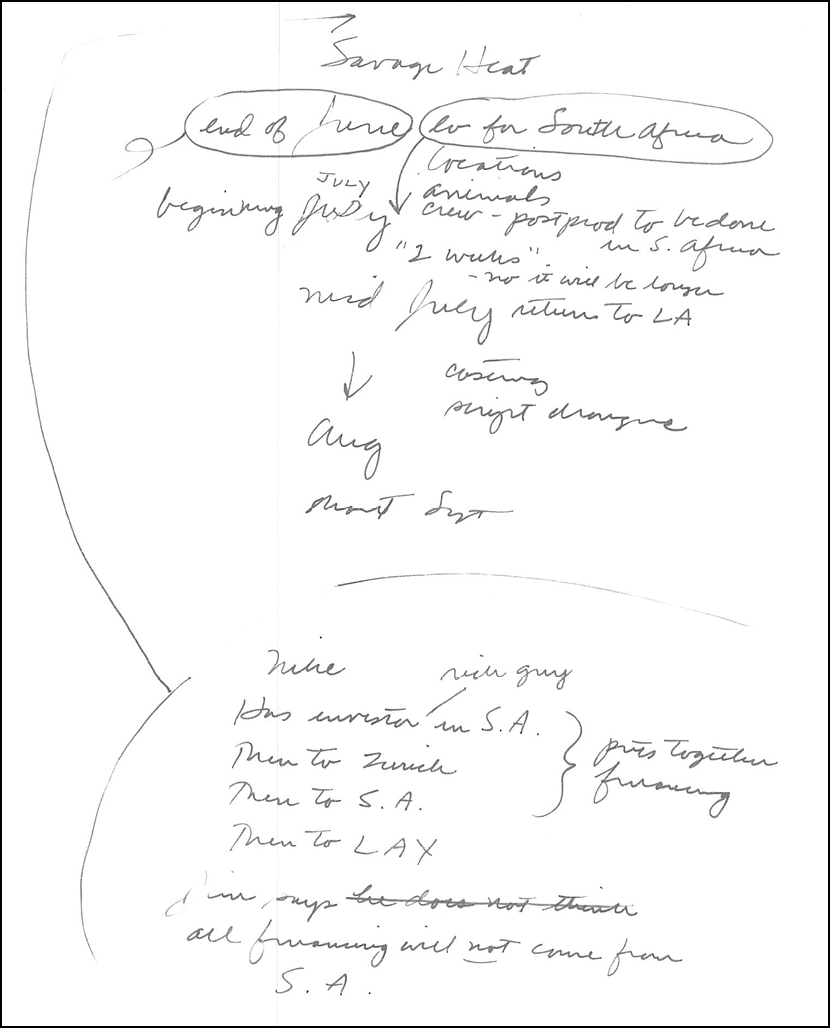 Savage Heat
end of June lv for South Africa
locations
JULY
animals
beginning July crew - postprod to be done
in S. Africa
"2 weeks"
- no it will be longer
mid July return to LA
casting
script changes
Aug
start Sept
Mike rich guy
Has investor in S.A.
Then to Zurich puts together
Then to S.A. financing
Then to LAX
Jim says he does not think
all financing will not come from
S.A.